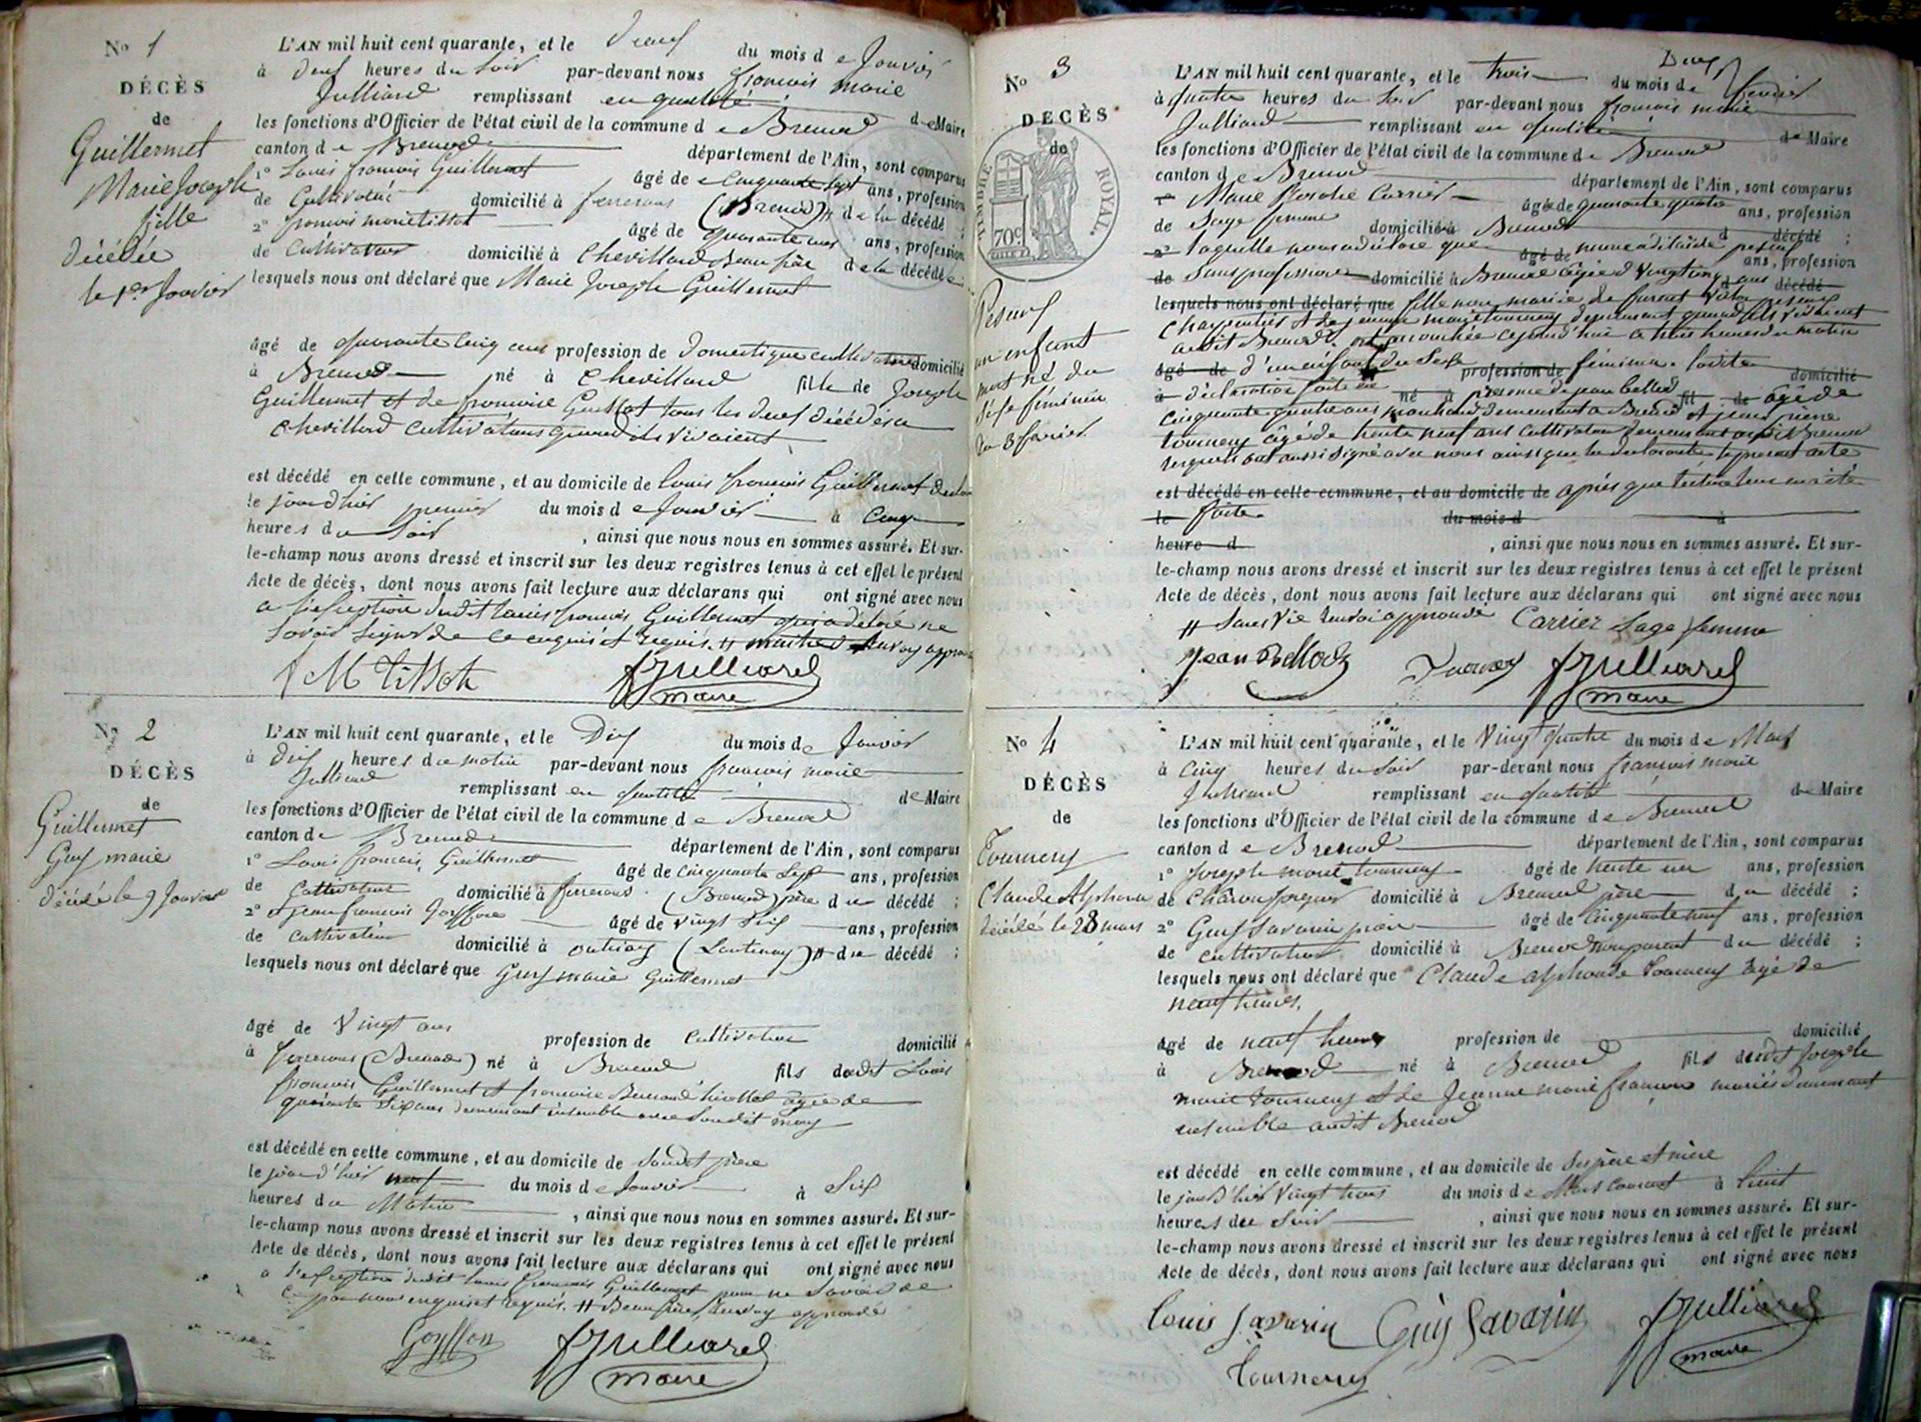 No 1
DÉCÈS
de
Guillermet
Marie Joseph
fille
Décédée
le 1er Janvier
L'AN mil huit cent quarante, et le Deux du mois de Janvier
à Deux heures du Soir par-devant nous françois marie
Julliard remplissant en qualité de Maire
les fonctions d'Officier de l'état civil de la commune de Brenod
canton de Brenod département de l'Ain, sont comparus
1° Louis françois Guillermet âgé de Cinquante Sept ans, profession
de Cultivateur domicilié à ferrerous (Brenod) # de la décédé ;
2° françois marie tissot âgé de quarante ans, profession
de Cultivateur domicilié à Chevillard Beau frère de la décédée
lesquels nous ont déclaré que Marie Joseph Guillermet
âgé de quarante Cinq ans profession de Domestique domicilié
à Brenod né à Chevillard fille de Joseph
Guillermet et de françoise tous les deux décédés a
Chevillard cultivateurs quand ils vivaient
est décédé en cette commune, et au domicile de louis françois Guillermet
le jour d'hier premier du mois de Janvier à Cinq
heures du Soir , ainsi que nous nous en sommes assuré. Et sur-
le-champ nous avons dressé et inscrit sur les deux registres tenus à cet effet le présent
Acte de décès, dont nous avons fait lecture aux déclarans qui ont signé avec nous
a l'exception dudit Louis françois Guillermet qui a déclaré ne
savoir signer de ce enquis et requis. #
M Tissot fJulliard
maire
No 2
DÉCÈS
de
Guillermet
Guy marie
Décédé le 9 Janvier
L'AN mil huit cent quarante, et le Dix du mois de Janvier
à Dix heures du matin par-devant nous françois marie
Julliard remplissant en qualité de Maire
les fonctions d'Officier de l'état civil de la commune de Brenod
canton de Brenod département de l'Ain, sont comparus
1° Louis françois Guillermet âgé de cinquante Sept ans, profession
de Cultivateur domicilié à ferrerous (Brenod) père du décédé ;
2° jean françois âgé de vingt ans, profession
de Cultivateur domicilié à outriaz (Lantenay) # du décédé ;
lesquels nous ont déclaré que Guy marie Guillermet
âgé de Vingt ans profession de Cultivateur domicilié
à ferrerous (Brenod) né à Brenod fils dudit Louis
françois Guillermet et françoise âgée de
quarante Six ans demeurant ensemble avec Sondit mary
est décédé en cette commune, et au domicile de Sondit père
le jour d'hier neuf du mois de Janvier à Six
heures du Matin , ainsi que nous nous en sommes assuré. Et sur-
le-champ nous avons dressé et inscrit sur les deux registres tenus à cet effet le présent
Acte de décès, dont nous avons fait lecture aux déclarans qui ont signé avec nous
a l'exception dudit Louis françois Guillermet pour ne Savoir de
ce par nous enquis et requis. # Beau frère renvoy approuvé
Goyffon fJulliard
maire
No 3
DÉCÈS
de
TIMBRE ROYAL.
70c
un enfant
mort né du
Sexe féminin
du 3 février
L'AN mil huit cent quarante, et le trois du mois de février
à quatre heures du Soir par-devant nous françois marie
Julliard remplissant en qualité de Maire
les fonctions d'Officier de l'état civil de la commune de Brenod
canton de Brenod département de l'Ain, sont comparus
1° Marie Carrier âgé de quarante quatre ans, profession
de Sage femme domicilié à Brenod d décédé ;
2° laquelle nous a déclaré que âgé de ans, profession
de Sans profession domicilié à Brenod âgée d Vingt cinq ans d décédé
lesquels nous ont déclaré que fille non mariée de
et de marie tourney demeurant quand ils vivaient
audit Brenod. est accouchée cejourd'hui a trois heures du matin
âgé de d'un enfant du Sexe profession de féminin. ladite domicilié
à déclaration faite né à présence de jean bellod fil de âgé de
cinquante quatre ans marchand demeurant a Brenod et jean pierre
tourney âgé de trente neuf ans cultivateur demeurant audit Brenod
lesquels ont aussi Signé avec nous ainsi que la déclarante le présent acte
est décédé en cette commune, et au domicile de après que lecture leur en a été
le faite du mois d à
heure d , ainsi que nous nous en sommes assuré. Et sur-
le-champ nous avons dressé et inscrit sur les deux registres tenus à cet effet le présent
Acte de décès, dont nous avons fait lecture aux déclarans qui ont signé avec nous
# Sans Vie renvoi approuvé Carrier Sage femme
Jean Bellod Tourney fJulliard
maire
No 4
DÉCÈS
de
Tourney
Claude Alphonse
Décédé le 23 mars
L'AN mil huit cent quarante, et le Vingt quatre du mois de Mars
à Cinq heures du Soir par-devant nous françois marie
Julliard remplissant en qualité de Maire
les fonctions d'Officier de l'état civil de la commune de Brenod
canton de Brenod département de l'Ain, sont comparus
1° Joseph marie tourney âgé de trente un ans, profession
de domicilié à Brenod père du décédé ;
2° Guy Savarin âgé de Cinquante neuf ans, profession
de cultivateur domicilié à Brenod non parent du décédé ;
lesquels nous ont déclaré que Claude alphonse tourney âgé de
neuf heures.
âgé de neuf heures profession de domicilié
à Brenod né à Brenod fils dudit Joseph
marie tourney et de Jeanne marie mariés demeurant
ensemble audit Brenod
est décédé en cette commune, et au domicile de Ses père et mère
le jour d'hier Vingt trois du mois de Mars courant à huit
heures du Soir , ainsi que nous nous en sommes assuré. Et sur-
le-champ nous avons dressé et inscrit sur les deux registres tenus à cet effet le présent
Acte de décès, dont nous avons fait lecture aux déclarans qui ont signé avec nous
Louis Savarin Guy Savarin fJulliard
Tourney maire